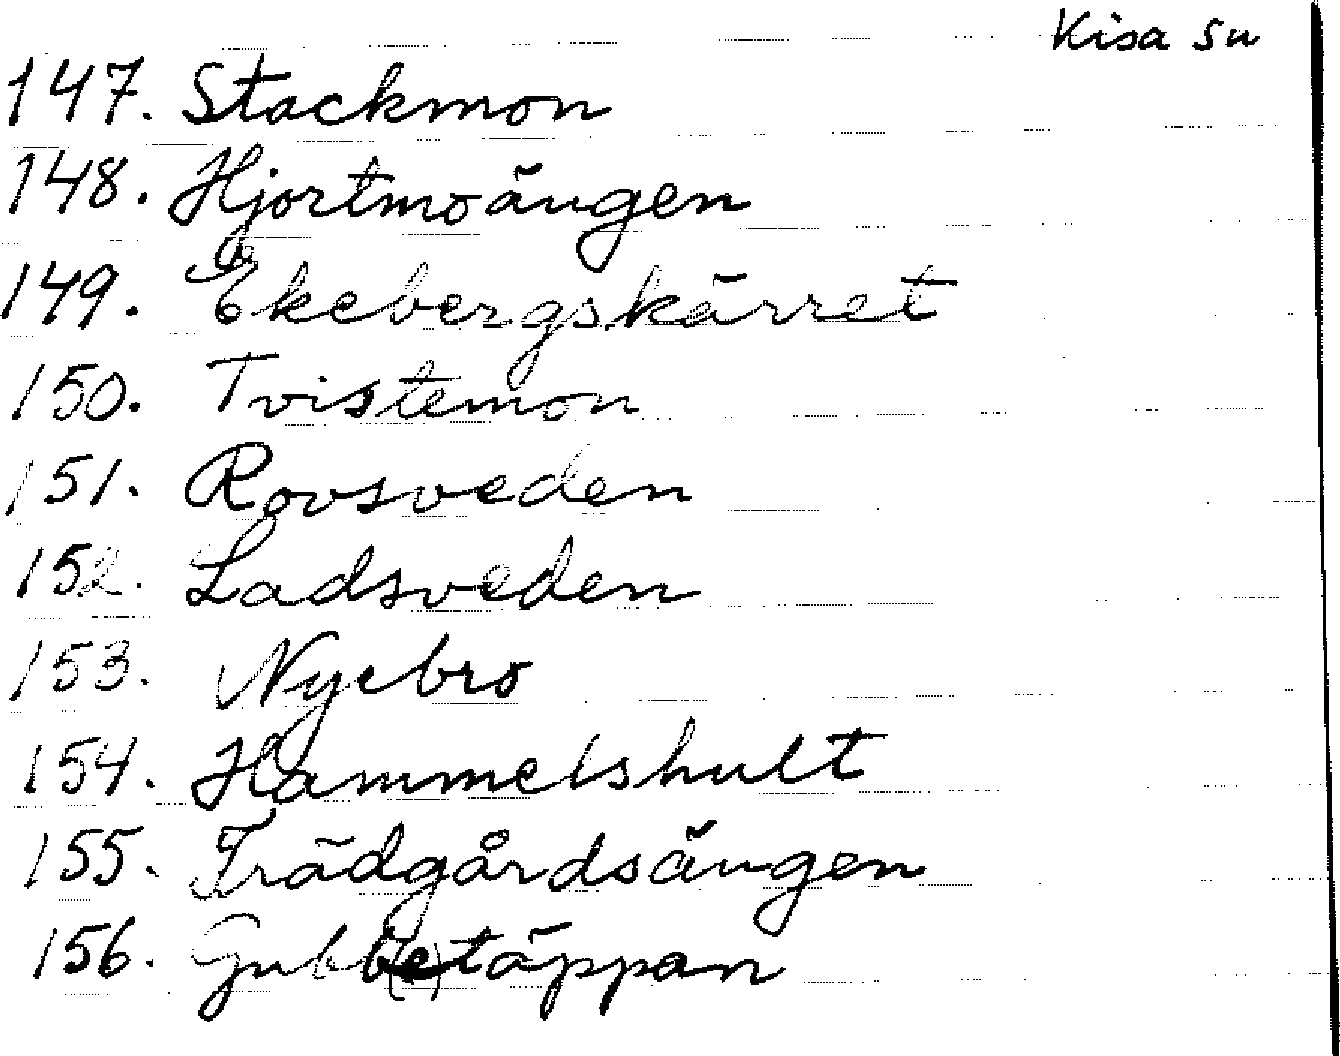 Kisa sn
147. Stackmon
148. Hjortmoängen
149. Ekebergskärret
150. Tvistemon
151. Rovsveden
152. Ladsveden
153. Nyebro
154. Hammelshult
155. Trädgårdsängen
156. Gubb(e)täppan